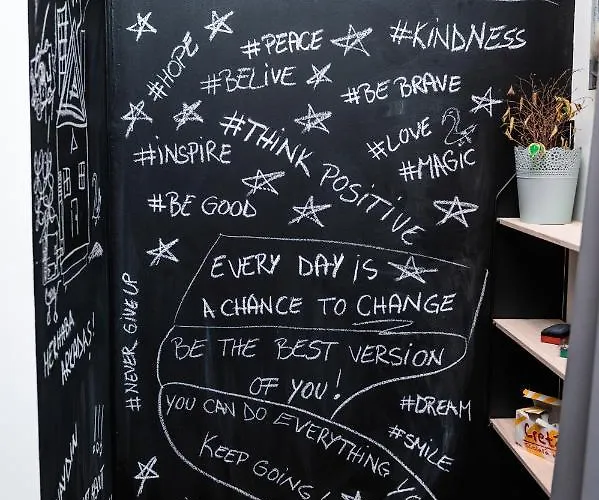 #HOPE
#PEACE
#KINDNESS
#BELIVE
#BE BRAVE
#INSPIRE
#THINK POSITIVE
#LOVE
#MAGIC
#BE GOOD
EVERY DAY IS
A CHANCE TO CHANGE
BE THE BEST VERSION
OF YOU!
YOU CAN DO EVERYTHING
KEEP GOING!
#NEVER GIVE UP
#DREAM
#SMILE
MERHABA
ARKADAŞ!